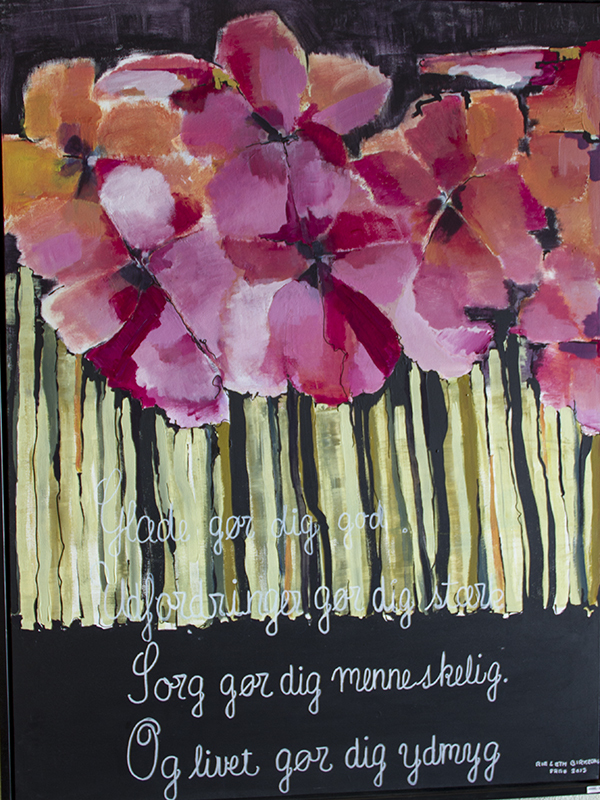 Glæde gør dig god.
Udfordringer gør dig stærk
Sorg gør dig menneskelig.
Og livet gør dig ydmyg